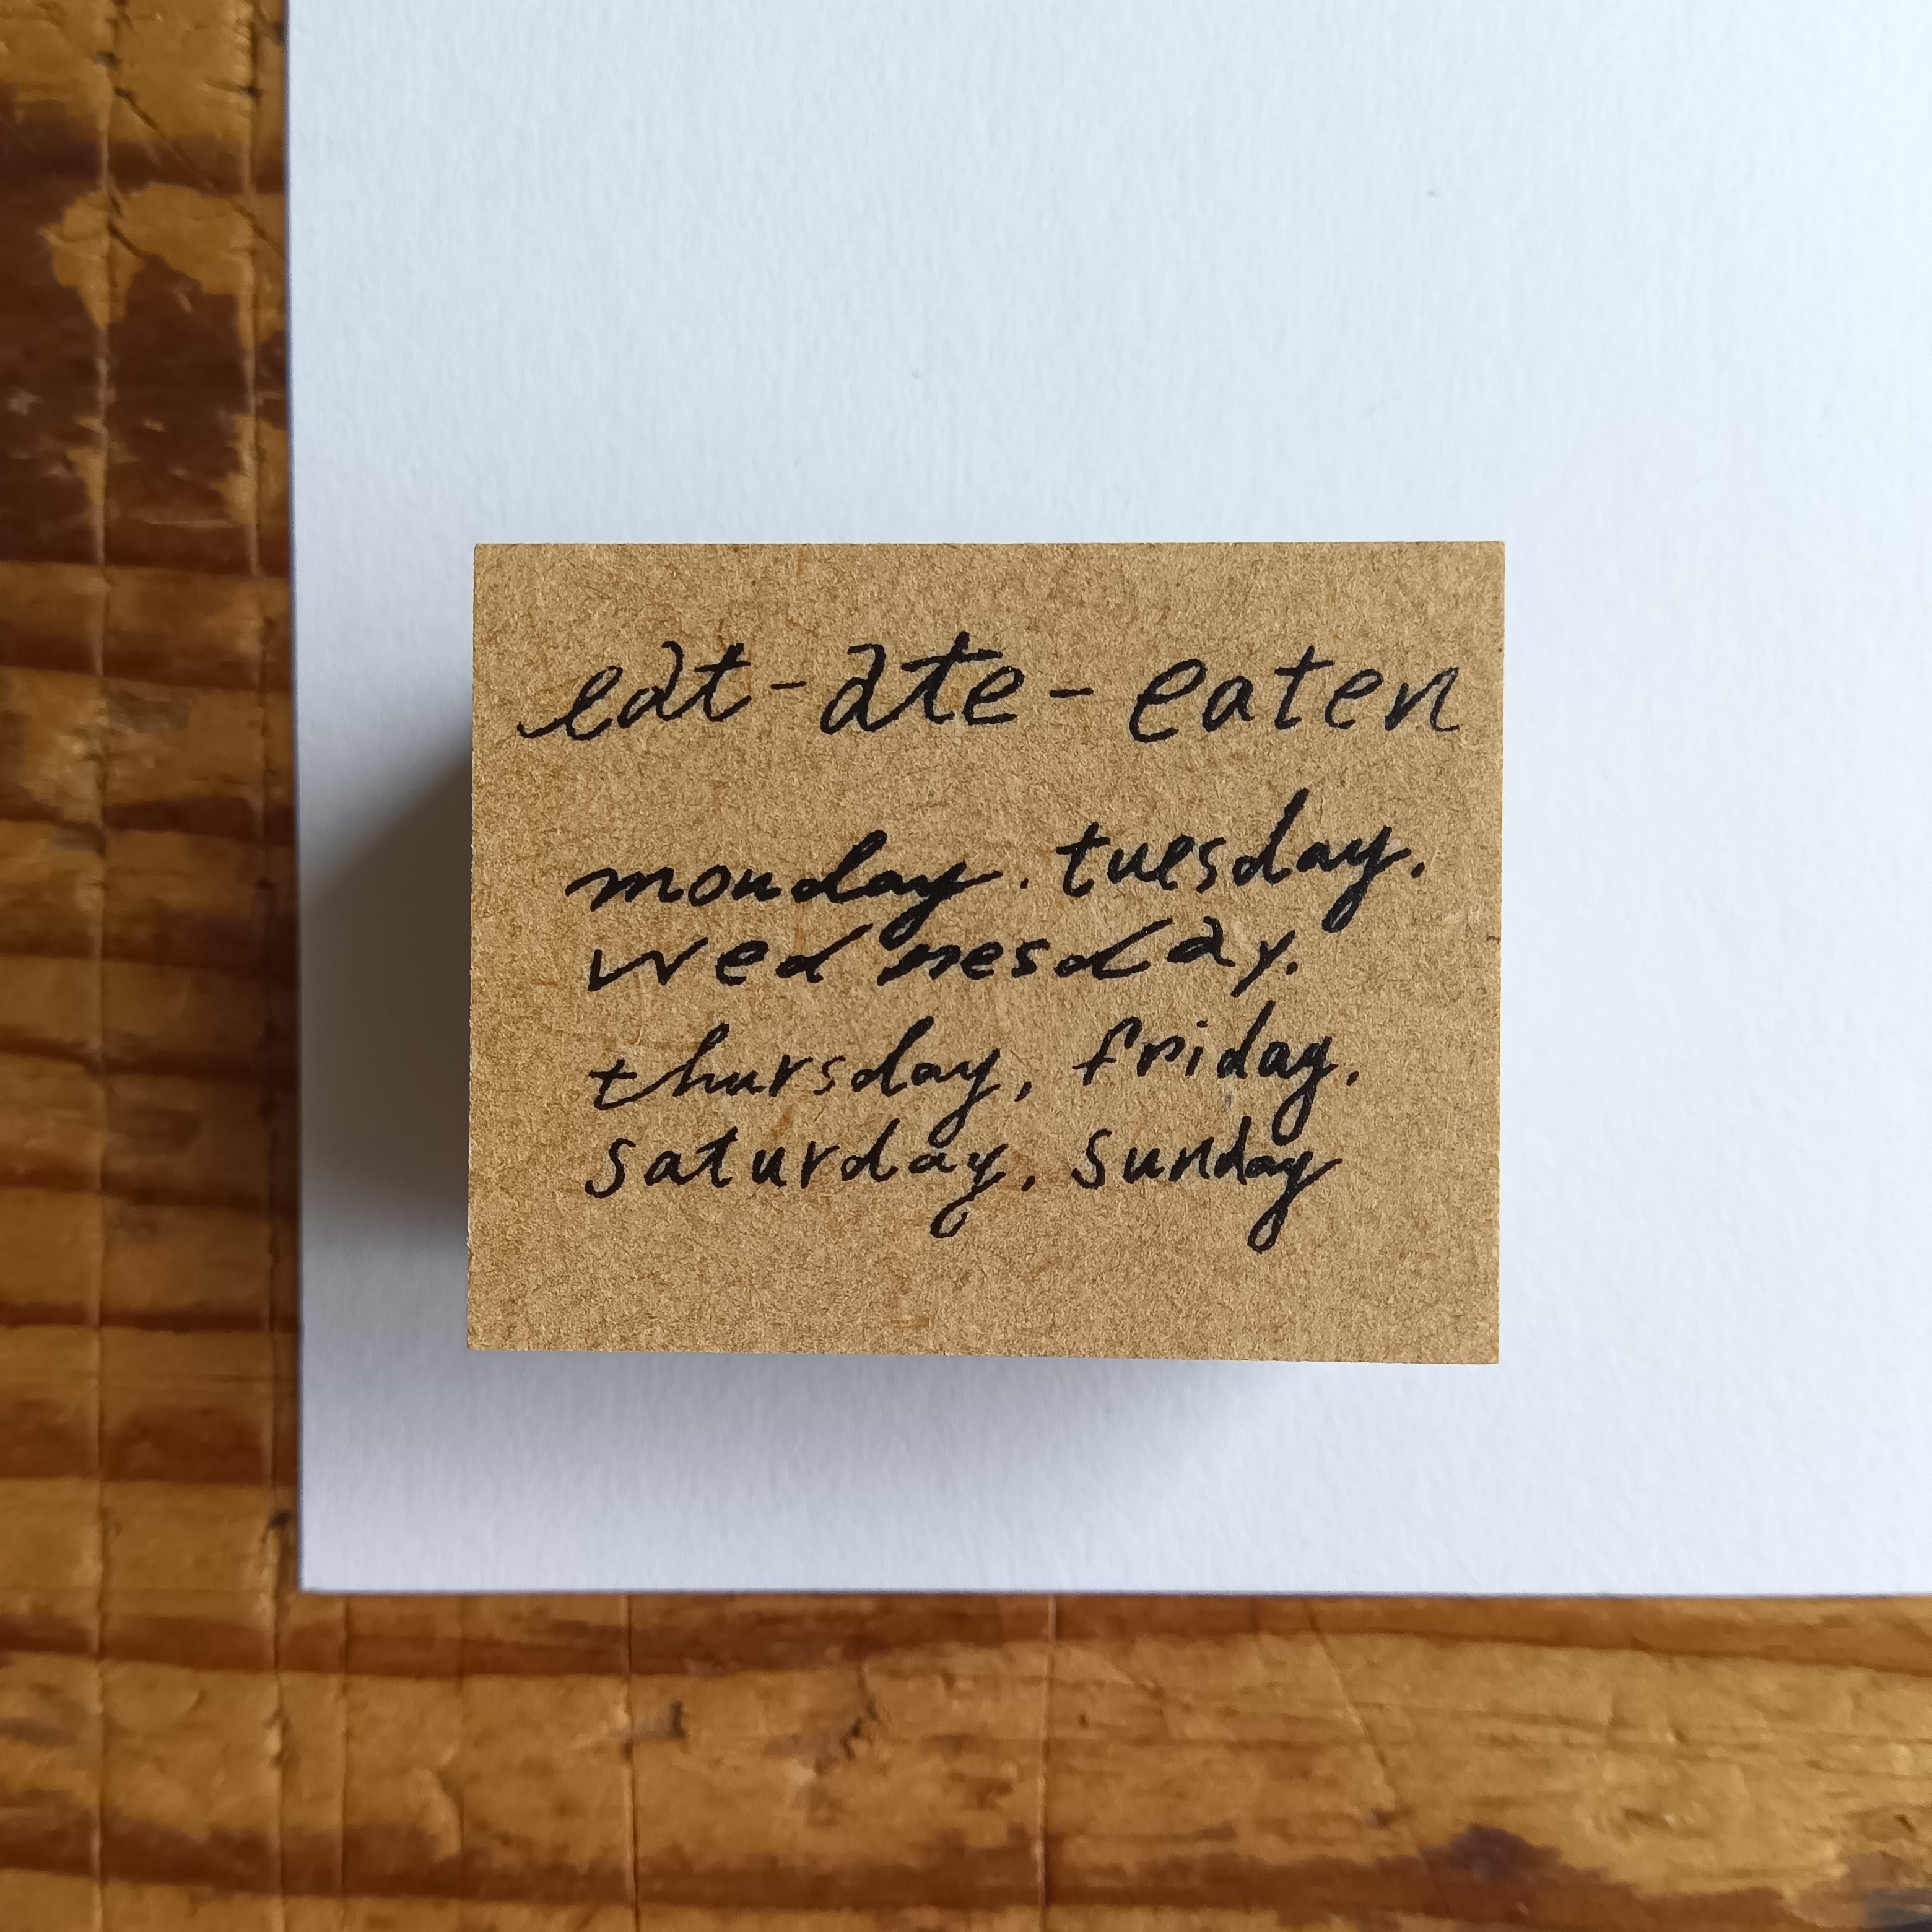 eat - ate - eaten
monday. tuesday.
wednesday.
thursday, friday.
saturday. sunday